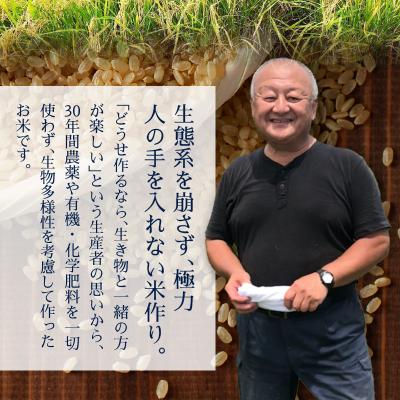 生態系を崩さず、極力
人の手を入れない米作り。
「どうせ作るなら、生き物と一緒の方
が楽しい」という生産者の思いから、
30年間農薬や有機・化学肥料を一切
使わず、生物多様性を考慮して作った
お米です。